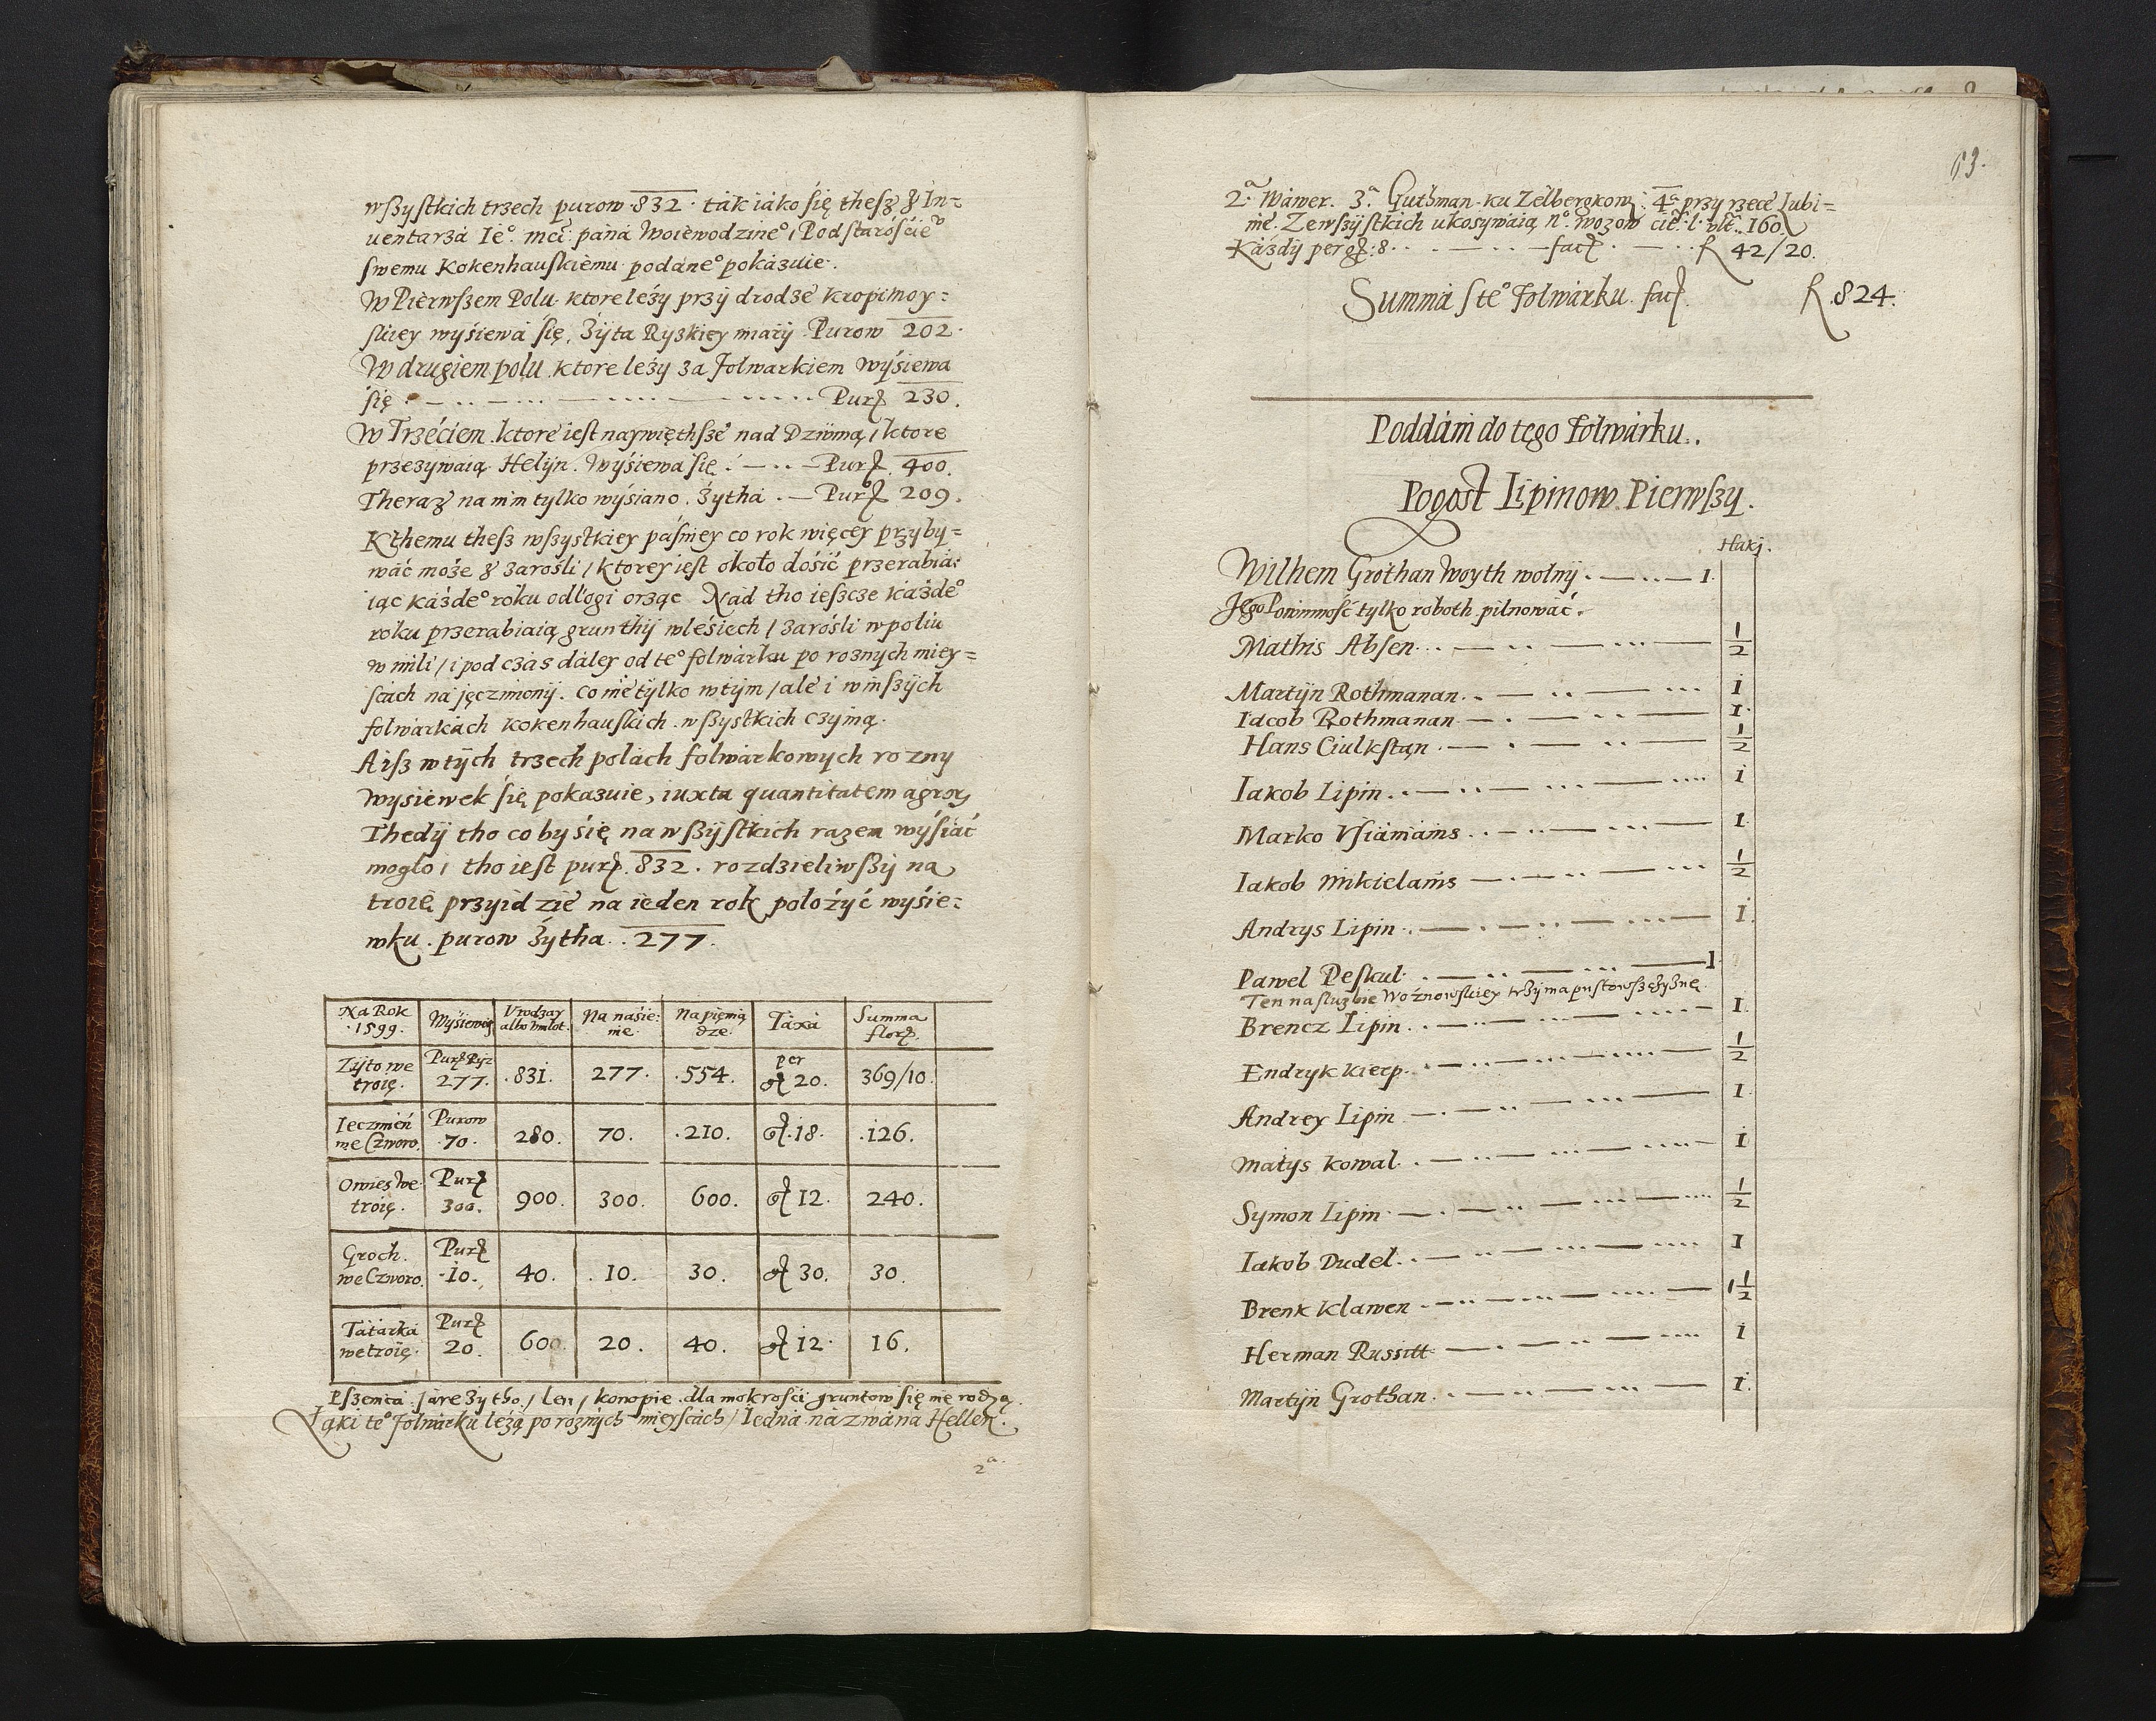 wszystkich trzech purow 832. tak iako się thesz z In-
uentarza Ie° mci pana Woiewodzine°, Podstaroście°
swemu Kokenhauskiemu podane° pokazuie.
W Pierwszem Polu ktore leży przy drodze Kropimoy-
skiey wysiewa się, Żÿta Ryskiey miarÿ Purow 202.
W drugiem polu ktore leży za Folwarkiem wÿsiewa
się Purꝝ 230.
W Trzeciem ktore iest naywiętsze nad Dzwiną, ktore
przezywaią Helÿn. Wÿsiewa się Purꝝ. 400.
Theraz na nim tylko wÿsiano Żytha. Purꝝ 209.
K themu thesz wszystkiey pasznieÿ co rok więcey przyby-
wać może z zarośli, ktorey iest około dosić przerabia-
iąc każde° roku odłogi orząc Nad tho iescze każde°
roku przerabiaią grunthÿ w lesiech, zarośli w poliu
w mili, i pod czas daley od te° folwarku po roznych miey-
scach na jęczmionÿ. Co nie tylko w tÿm, ale i w inszÿch
folwarkach Kokenhauskich wszystkich czÿnią.
A isz w tÿch trzech polach folwarkowych rozny
wysiewek się pokazuie, iuxta quantitatem agroꝝ
Thedÿ tho co by się na wszÿstkich razem wÿsiać
mogło, tho iest purꝝ. 832. rozdzieliwszÿ na
troię przyidzie na ieden rok położyć wÿsie-
wku. purow Żytha. 277.
Na Rok 1599. Wÿsiewaią Vrodzay albo vmłot. Na nasie-nie. Na pięnią dze. Taxa Summa florꝝ.
Zÿto we troię. Purꝝ Ryz 277. 831. 277. 554. per gꝝ 20. 369/10.
Ieczmień we Czworo. Purow 70. 280. 70. 210. gꝝ. 18. 126.
Owies we troię. Purꝝ 300. 900. 300. 600. gꝝ 12. 240.
Groch. we Czworo. Purꝝ 10. 40. 10. 30. gꝝ 30. 30.
Tatarka we troię. Purꝝ 20. 600. 20. 40. gꝝ 12. 16.
Pszenica, Jare Zytho, len, konopie dla mokrosci gruntow się nie rodzą.
Łąki te° Folwarku leżą po roznych mieyscach, Iedna nazwana Hellen.
2ᵃ
63.
2ᵃ Wawer. 3ᵃ Guthman ku Zelbergkowi. 4ᵃ przy rzece Lubi-
nie. Ze wszÿstkich ukosywaią n° wozow 160
Każdÿ per gꝝ. 8. facꝝ. f 42/20.
Summa s te° Folwarku. facꝝ. f 824.
Poddani do tego Folwarku.
Pogost Lipinow Pierwszy.
Haki.
Wilhem Grothan Woyth wolnÿ. 1.
Jego Powinność tylko roboth pilnować.
Mathis Absen 1/2
Martÿn Rothmanan 1
Iacob Rothmanan 1.
Hans Ciulkstan 1/2
Iakob Lipin 1
Marko Vsiamains 1
Iakob Mikielanis 1/2
Andrys Lipin 1.
Pawel Peskul 1.
Ten na służbie Woźnowskiey trzÿma pustowszczyznę.
Brencz Lipin 1.
Endryk Kierp 1/2
Andrey Lipin 1
Matys Kowal 1
Symon Lipin 1/2
Iakob Dudel 1
Brenk Klawen 1 1/2
Herman Russitt 1
Martÿn Grothan 1.